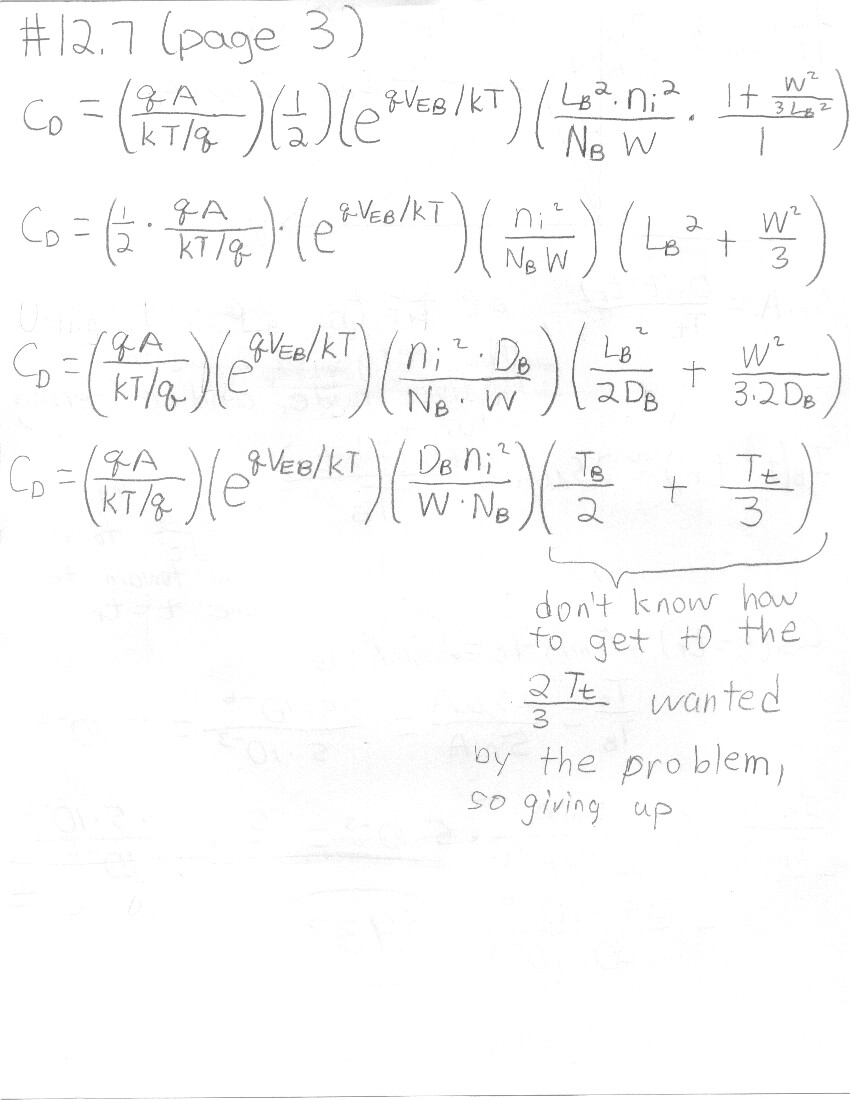 #12.7 (page 3)
C_D = (qA / (kT/q)) (1/2) (e^(qV_EB/kT)) (L_B² · n_i² / (N_B W) · (1 + W²/(3L_B²)) / 1)
C_D = (1/2 · qA / (kT/q)) · (e^(qV_EB/kT)) (n_i² / (N_B W)) (L_B² + W²/3)
C_D = (qA / (kT/q)) (e^(qV_EB/kT)) (n_i² · D_B / (N_B · W)) (L_B² / (2D_B) + W² / (3·2D_B))
C_D = (qA / (kT/q)) (e^(qV_EB/kT)) (D_B n_i² / (W · N_B)) (T_B / 2 + T_t / 3)
don't know how
to get to the
2 T_t / 3 wanted
by the problem,
so giving up